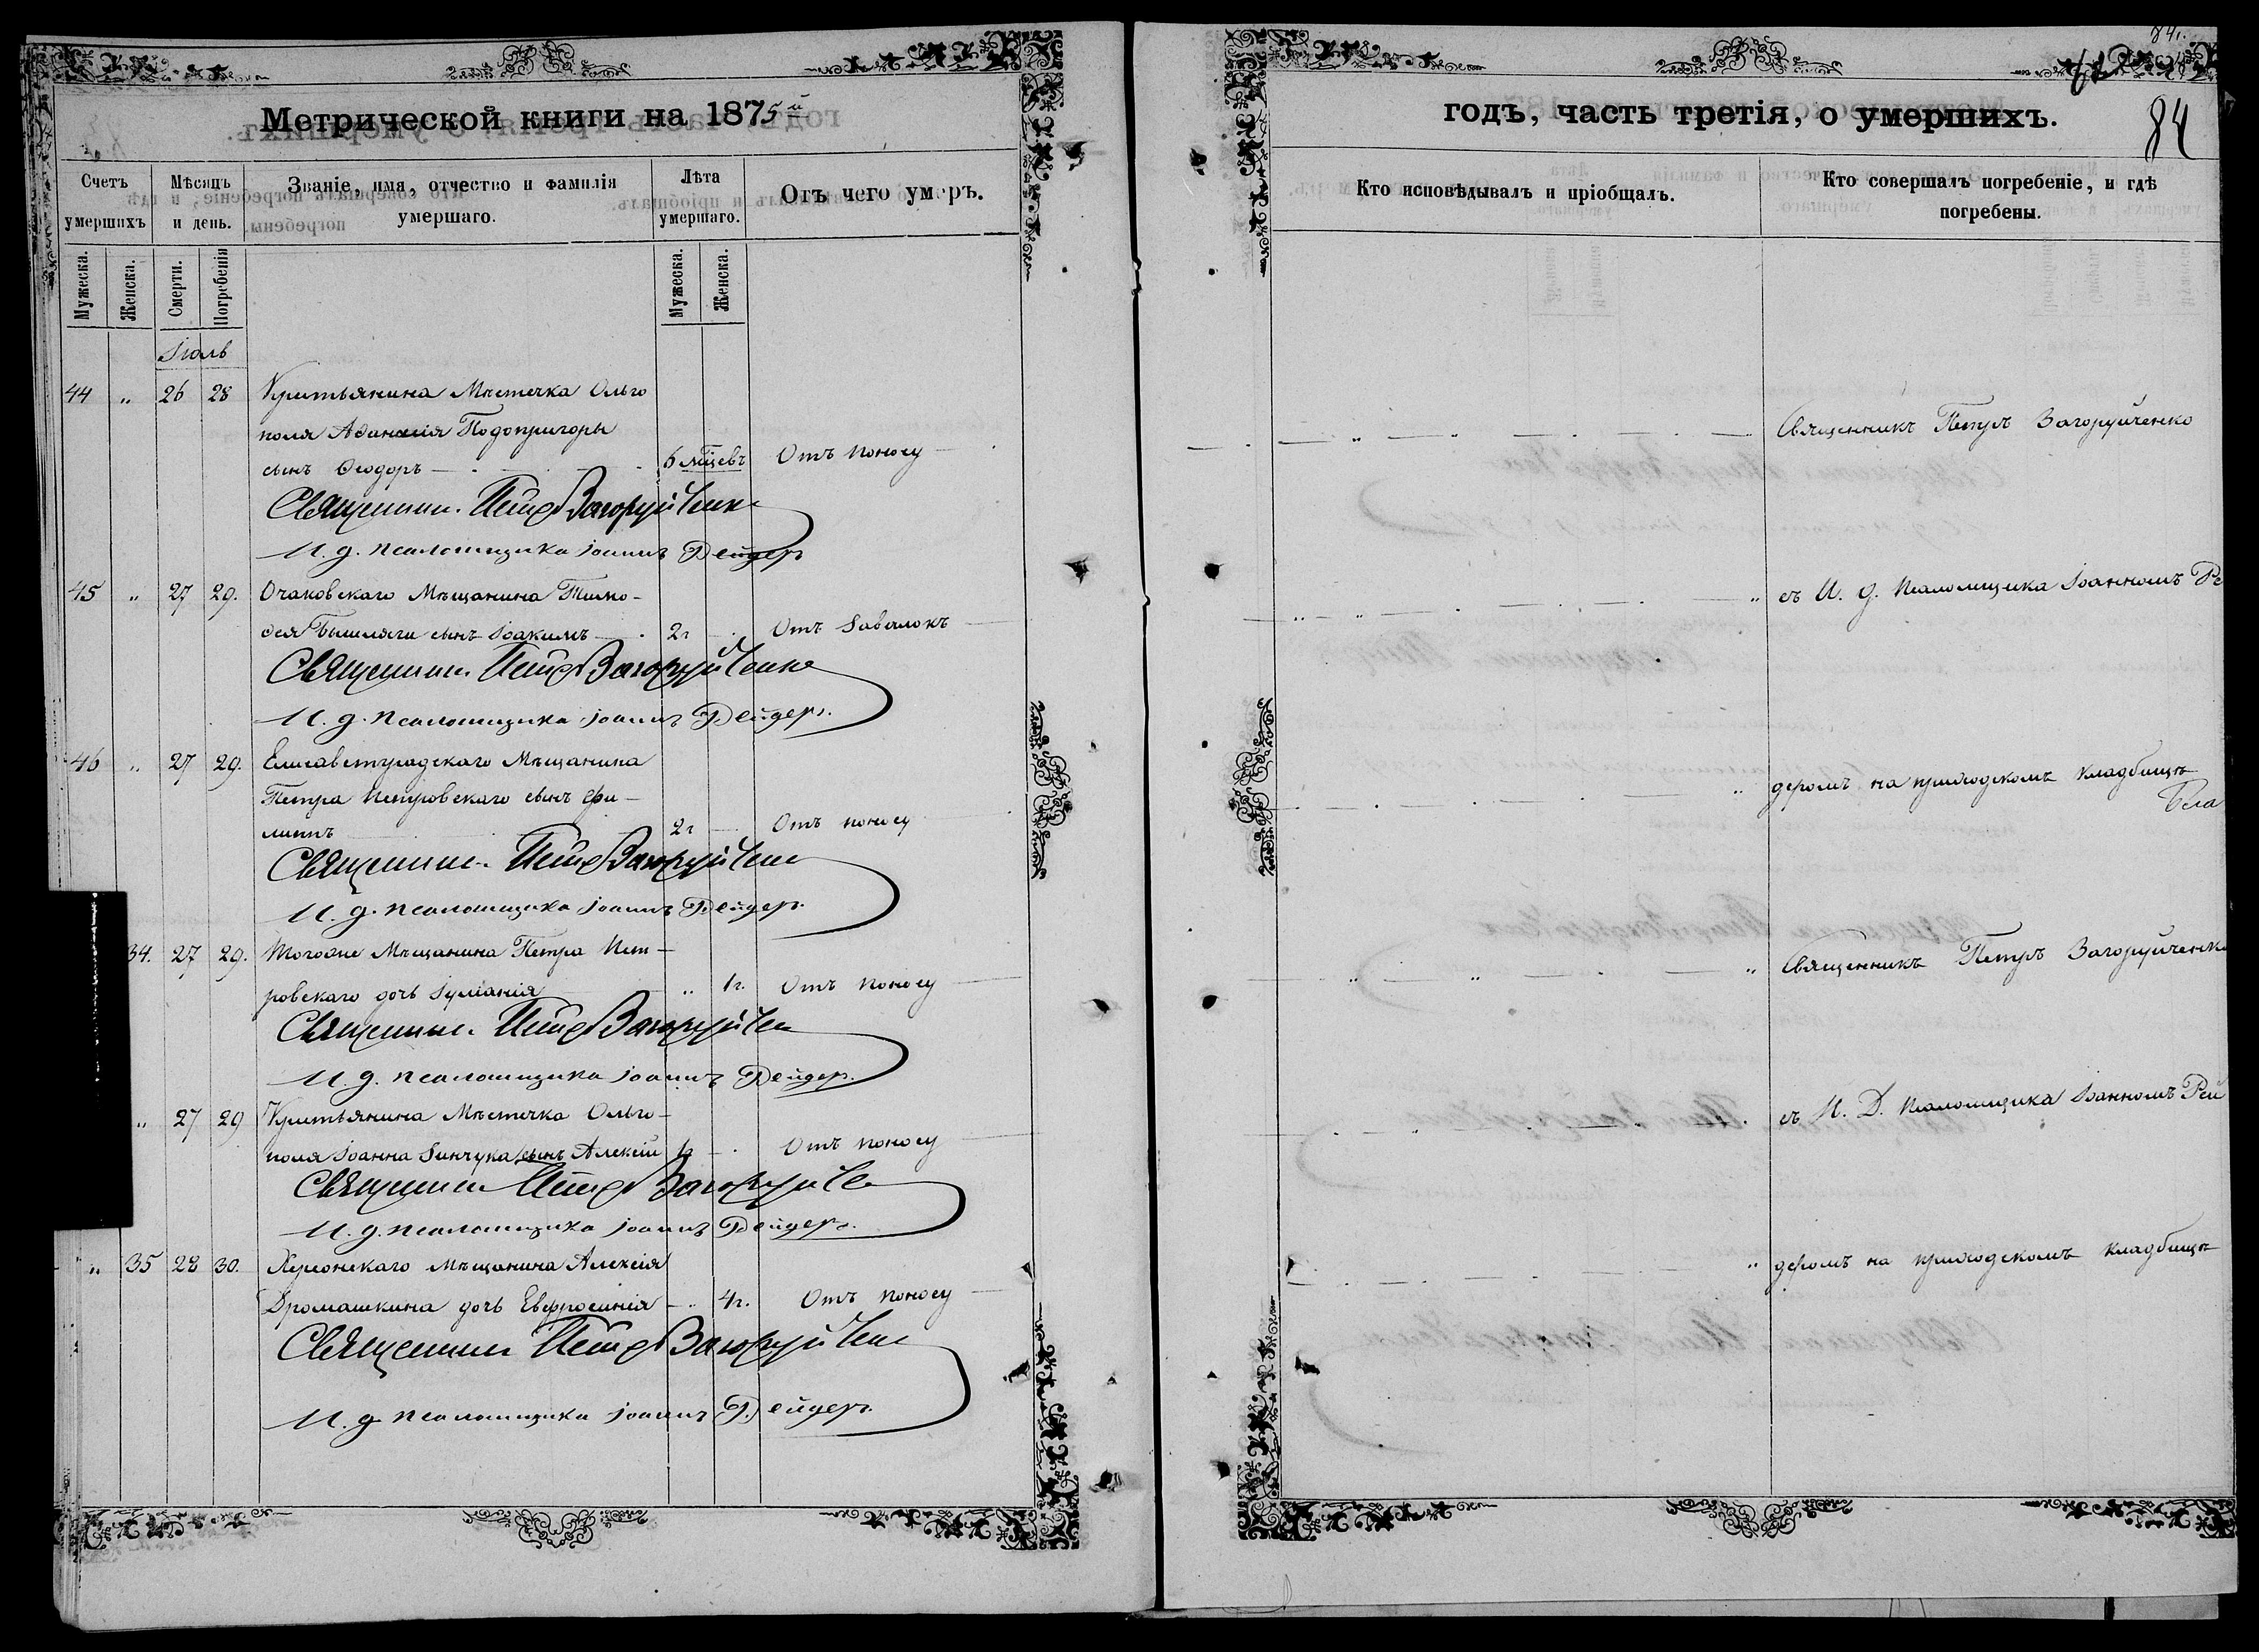 Метрической книги на 1875й
Счетъ умершихъ
Мѣсяцъ и день.
Званіе, имя, отчество и фамилія умершаго.
Лѣта умершаго.
Отъ чего умеръ.
Мужеска. Женска. Смерти. Погребенія Мужеска. Женска.
Іюль
44 " 26 28 Крестьянина Мѣстечка Ольго
поля Аѳанасія Подопригоры
сынъ Ѳеодоръ 6 мѣцевъ Отъ поносу
Священник. Петръ Загоруйченко
И. д. псаломщика Іоаннъ Рейдеръ
45 " 27 29. Очаковскаго Мѣщанина Тимо-
ѳея сынъ Іоакимъ 2г Отъ Завалокъ
Священник. Петръ Загоруйченко
И. д. псаломщика Іоаннъ Рейдеръ.
46 " 27 29. Елисаветградскаго Мѣщанина
Петра Петровскаго сынъ Фи-
липпъ 2г Отъ поносу
Священник. Петръ Загоруйченко
И. д. псаломщика Іоаннъ Рейдеръ.
34. 27 29. Тогоже Мѣщанина Петра Пет-
ровскаго дочь Іуліанія " 1г. Отъ поносу
Священник. Петръ Загоруйченко
И. д. псаломщика Іоаннъ Рейдеръ.
" 27 29 Крестьянина Мѣстечка Ольго-
поля Іоанна Зинчука сынъ Алексій 1г Отъ поносу
Священник Петръ Загоруйченко
И. д. псаломщика Іоаннъ Рейдеръ.
" 35 28 30. Херсонскаго Мѣщанина Алексія
Дромашкина дочь Евфросинія " 4г. Отъ поносу
Священник Петръ Загоруйченко
И. д псаломщика Іоаннъ Рейдеръ.
84
годъ, часть третія, о умершихъ.
84
Кто исповѣдывалъ и пріобщалъ.
Кто совершалъ погребеніе, и гдѣ погребены.
Священникъ Петръ Загоруйченко
съ И. д. Псаломщика Іоанномъ Ре
деромъ на приходскомъ кладбищѣ
Священникъ Петръ Загоруйченко
съ И. Д. Псаломщика Іоанномъ Рей
деромъ на приходскомъ кладбищѣ